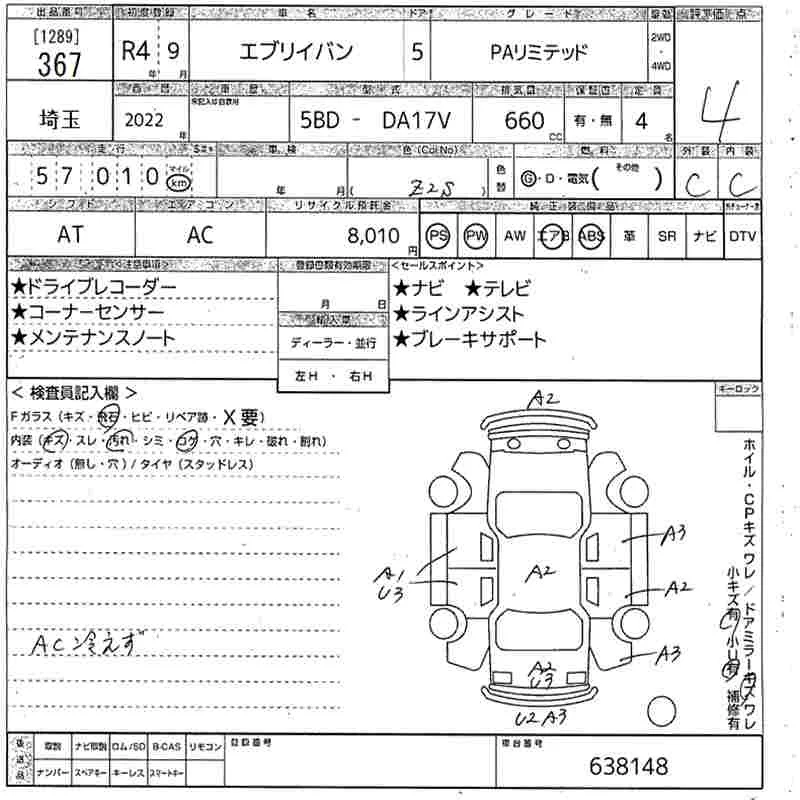 出品番号 初度登録 車名 ドア グレード 駆動 評価点
[1289]
367
R4年 9月 エブリイバン 5 PAリミテッド
2WD
・
4WD
4
埼玉
車歴 型式 排気量 保証書 定員
2022年
5BD - DA17V
660CC
有・無
4名
走行 車検 色(ColNo) 燃料 外装 内装
57,010
マイル
km
年 月( Z2S )
色替
G・D・電気( その他 )
C C
シフト エアコン リサイクル預託金 純正装備品
AT AC 8,010円
PS PW AW エアB ABS 革 SR ナビ DTV
登録台数有効期限
月 日
輸入車
ディーラー・並行
左H・右H
<セールスポイント>
★ドライブレコーダー
★コーナーセンサー
★メンテナンスノート
★ナビ ★テレビ
★ラインアシスト
★ブレーキサポート
キーロック
< 検査員記入欄 >
Fガラス(キズ・飛石・ヒビ・リペア跡・X要)
内装(キズ・スレ・汚れ・シミ・コゲ・穴・キレ・破れ・割れ)
オーディオ(無し・穴)/タイヤ(スタッドレス)
AC冷えず
A2
A3
A1
U3
A2
A2
A3
A2
U3
U2 A3
ホイル・CPキズワレ/ドアミラーキズワレ
小キズ有 小U有 補修有
後送品
取説 ナビ取説 ロム/SD B-CAS リモコン
ナンバー スペアキー キーレス スマートキー
登録番号
車台番号
638148